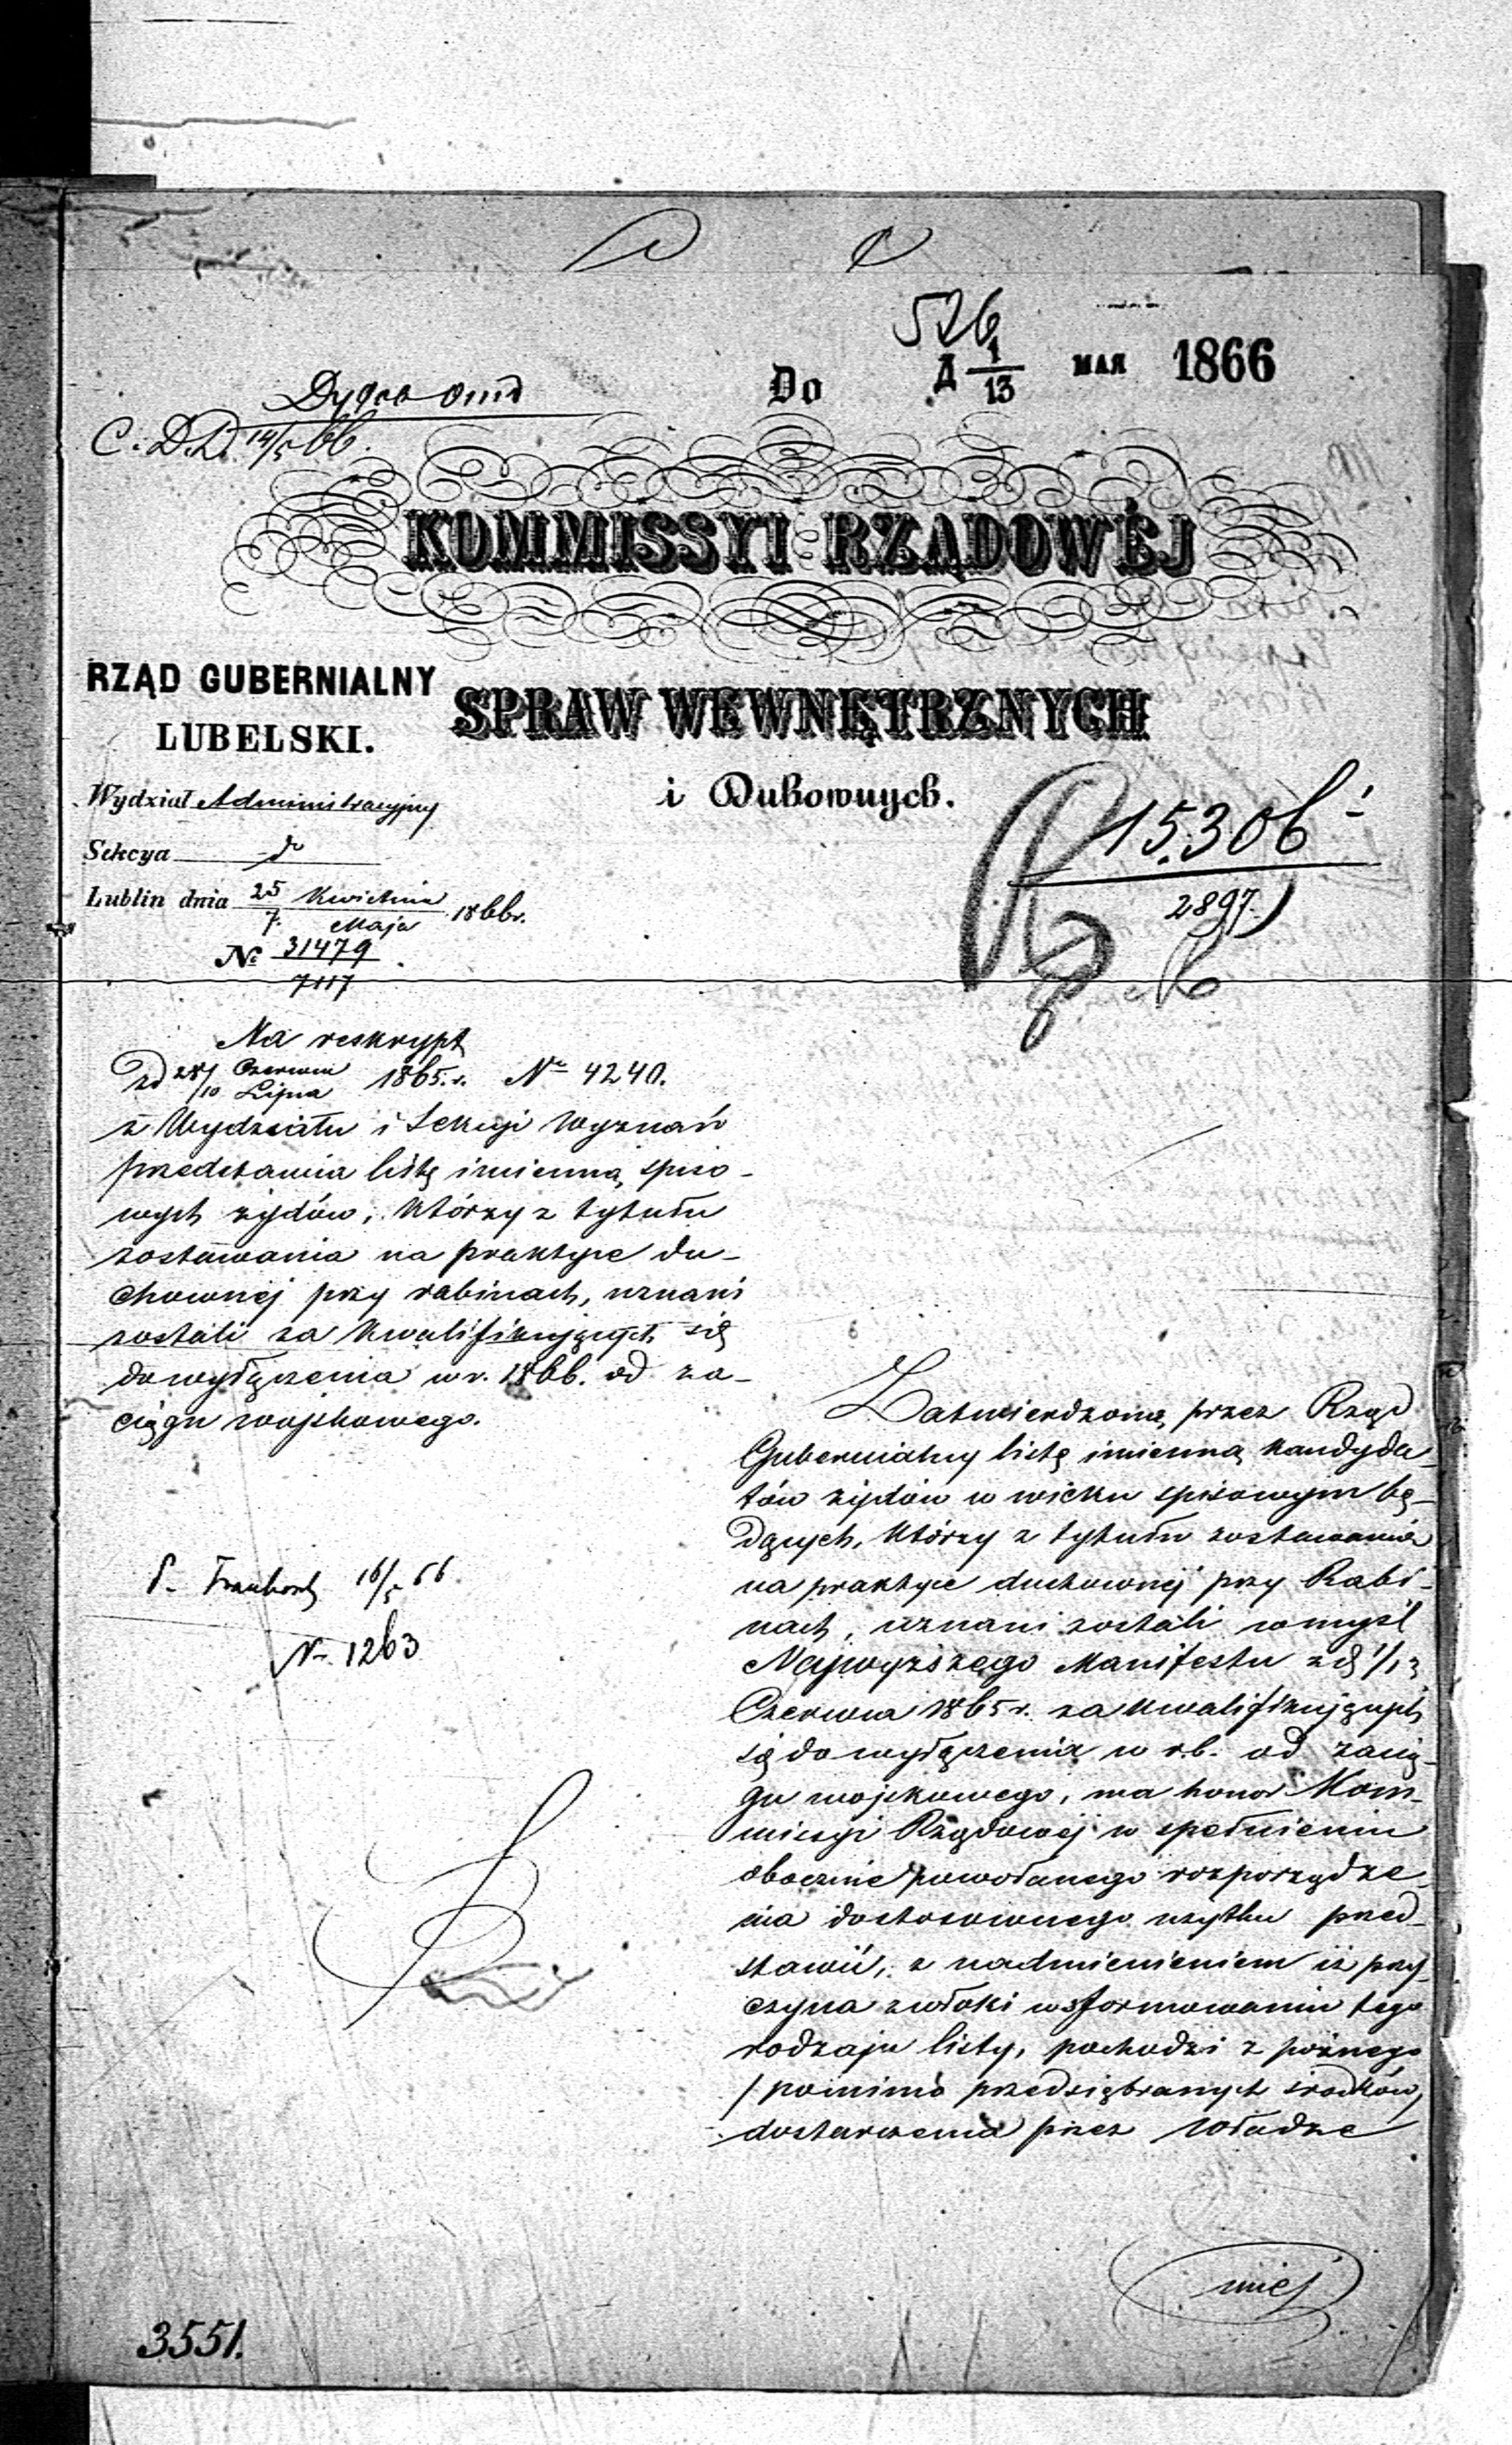 526
Д 1/13 МАЯ 1866
Do
C. D. D. 14/5 66.
KOMMISSYI RZĄDOWÉJ
RZĄD GUBERNIALNY
LUBELSKI.
SPRAW WEWNĘTRZNYCH
i Duchownych.
Wydział Administracyjny
Sekcya do
Lublin dnia 25 Kwietnia / 7 Maja 1866 r.
№ 31479 / 7117
15.306
2897
Na reskrypt
zd 28/10 Czerwca / Lipca 1865 r. № 4240.
z Wydziału i Sekcyi Wyznań
przedstawia listę imienną spiso-
wych żydów, którzy z tytułu
zostawania na praktyce du-
chownéj przy rabinach, uznani
zostali za kwalifikujących się
do wyłączenia w r. 1866. od za-
ciągu wojskowego.
Zatwierdzoną przez Rząd
Gubernialny listę imienną kandyda-
tów żydów w wieku spisowym bę-
dących, którzy z tytułu zostawania
na praktyce duchownéj przy Rabi-
nach, uznani zostali w myśl
Najwyższego Manifestu zd 1/13
Czerwca 1865 r. za kwalifikujących
się do wyłączenia w r.b. od zacią-
gu wojskowego, ma honor Kom-
missyi Rządowéj w spełnieniu
obocznie powołanego rozporządze-
nia do stosownego użytku przed-
stawić, z nadmienieniem iż przy-
czyna zwłoki w sformowaniu tego
rodzaju listy, pochodzi z poźnego
/pomimo przedsiębranych środków/
dostarczenia przez Władze
16/5 66
N. 1263
miej
3551.